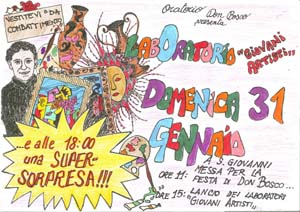 Oratorio Don Bosco
presenta
VESTITEVI "DA
COMBATTIMENTO"
LABORATORIO "GIOVANI
ARTISTI"...
DOMENICA 31
GENNAIO
...e alle 18:00
una SUPER-
SORPRESA!!!
A S. GIOVANNI
ORE 11: MESSA PER LA
FESTA DI DON BOSCO...
ORE 15: LANCIO DEI LABORATORI
"GIOVANI ARTISTI"